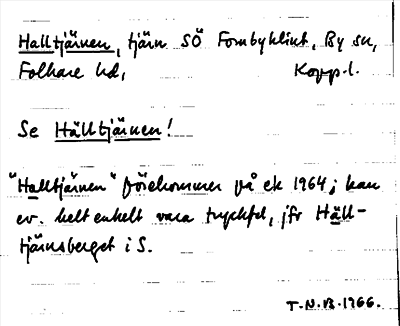 Halltjärnen, tjärn SÖ Fornbyklint, By sn,
Folkare hd, Kopp.l.
Se Hälltjärnen!
"Halltjärnen" förekommer på ek 1964; kan
ev. helt enkelt vara tryckfel, jfr Häll-
tjärnsberget i S.
T.N.B. 1966.